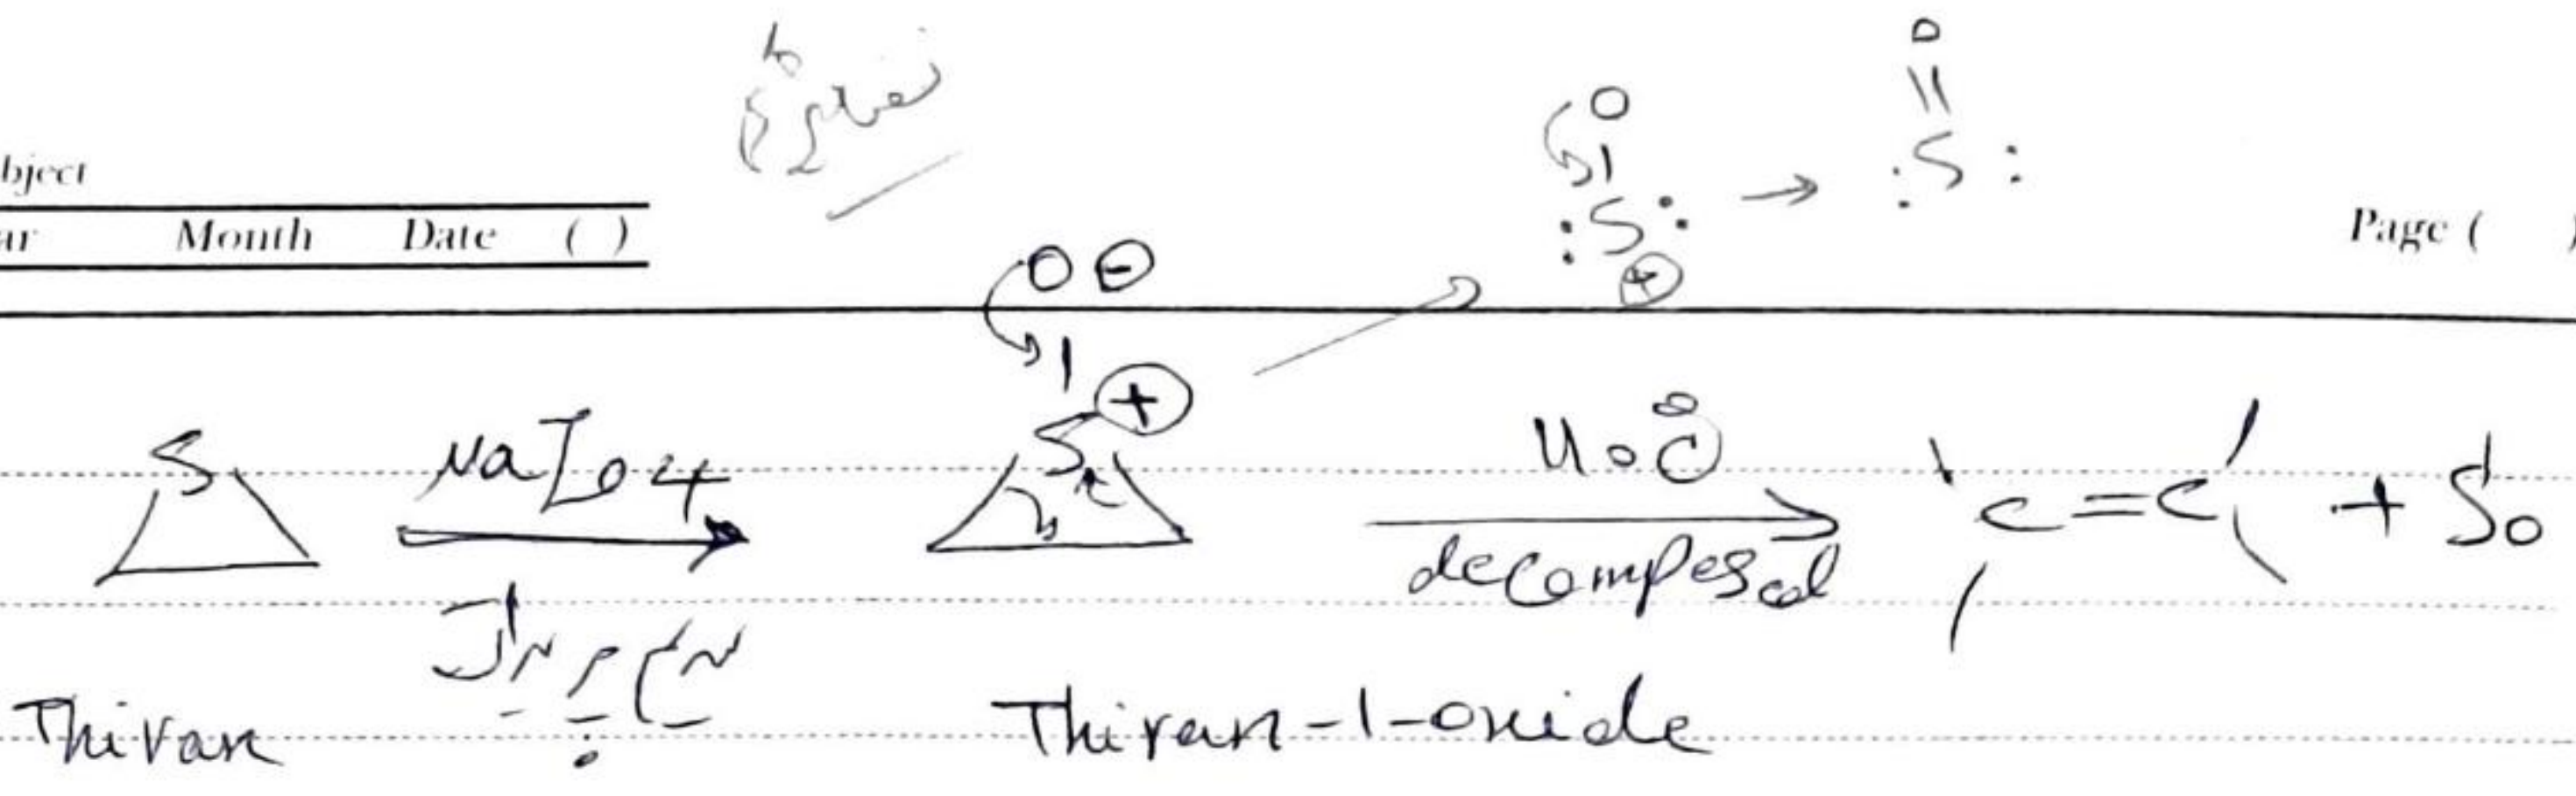 bject
ar Month Date ( ) Page ( )
O
||
:S:
O
|
:S:
⊕
→
O ⊖
|
S ⊕
S
NaIo4
40°C
decomposed
c=c + So
Thiran
Thiran-1-oxide